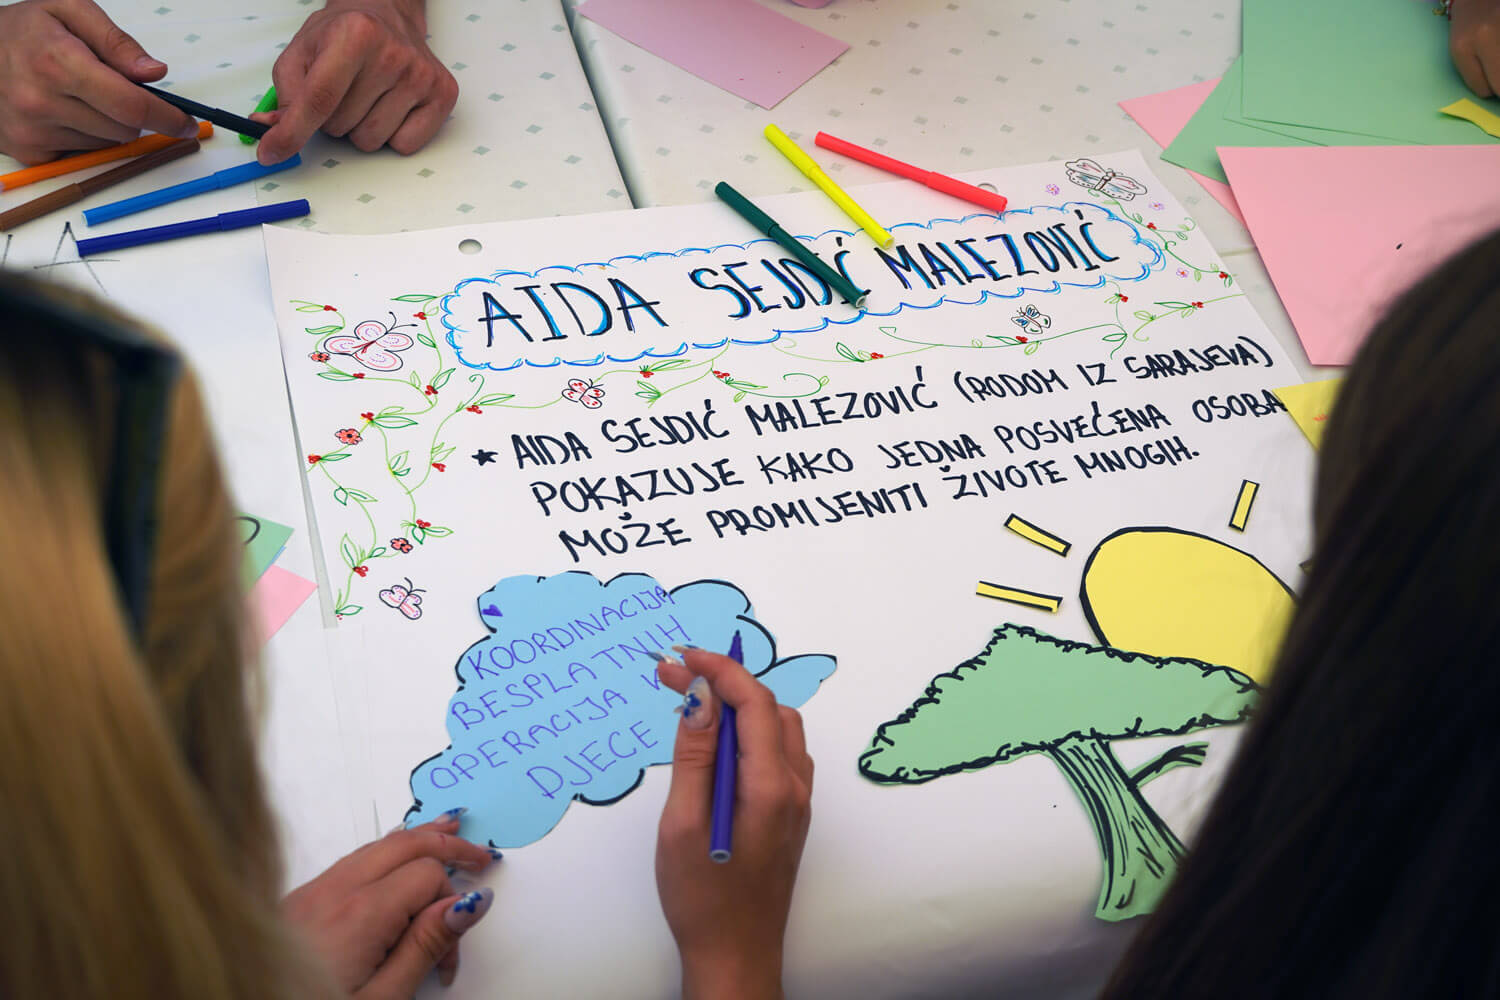 AIDA SEJDIĆ MALEZOVIĆ
★ AIDA SEJDIĆ MALEZOVIĆ (RODOM IZ SARAJEVA)
POKAZUJE KAKO JEDNA POSVEĆENA OSOBA
MOŽE PROMIJENITI ŽIVOTE MNOGIH.
KOORDINACIJA
BESPLATNIH
OPERACIJA
DJECE